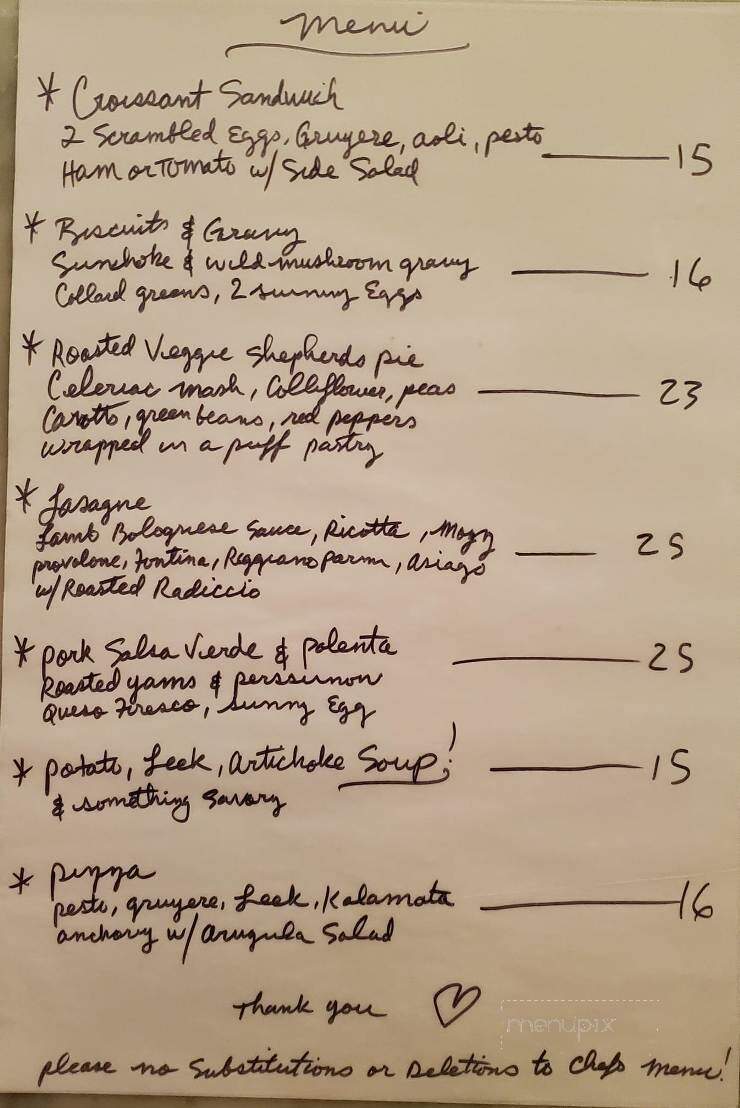 Menu
* Croissant Sandwich
2 Scrambled Eggs, Gruyere, aoli, pesto
Ham or Tomato w/ Side Salad 15
* Biscuits & Gravy
Sunchoke & wild mushroom gravy 16
Collard greens, 2 sunny Eggs
* Roasted Veggie Shepherds pie
Celeriac mash, Colliflower, peas 23
Carotts, green beans, red peppers
wrapped in a puff pastry
* Lasagne
Lamb Bolognese Sauce, Ricotta, Mozz
provolone, Fontina, Reggiano parm, asiago 25
w/ Roasted Radiccio
* Pork Salsa Verde & polenta 25
Roasted yams & perssimon
Queso Fresco, sunny Egg
* potato, Leek, Artichoke Soup! 15
& something savory
* pizza
pesto, gruyere, Leek, Kalamata 16
anchovy w/ arugula Salad
Thank you ♡
menupix
please no Substitutions or Deletions to Chefs menu!